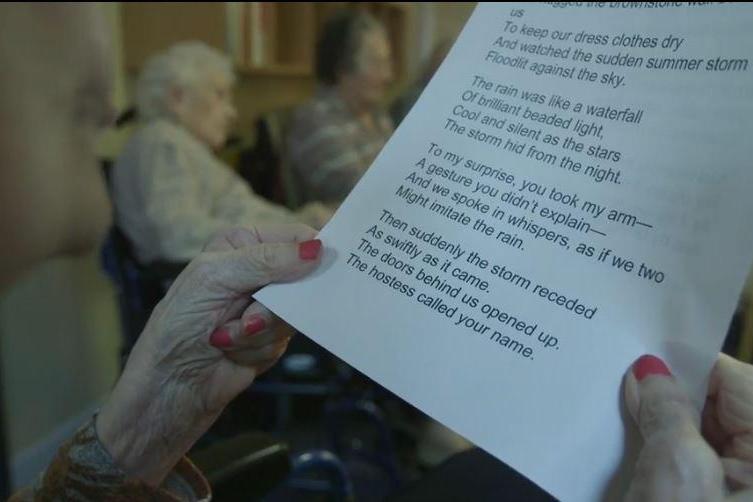 the brownstone wall
us
To keep our dress clothes dry
And watched the sudden summer storm
Floodlit against the sky.
The rain was like a waterfall
Of brilliant beaded light,
Cool and silent as the stars
The storm hid from the night.
To my surprise, you took my arm—
A gesture you didn't explain—
And we spoke in whispers, as if we two
Might imitate the rain.
Then suddenly the storm receded
As swiftly as it came.
The doors behind us opened up.
The hostess called your name.